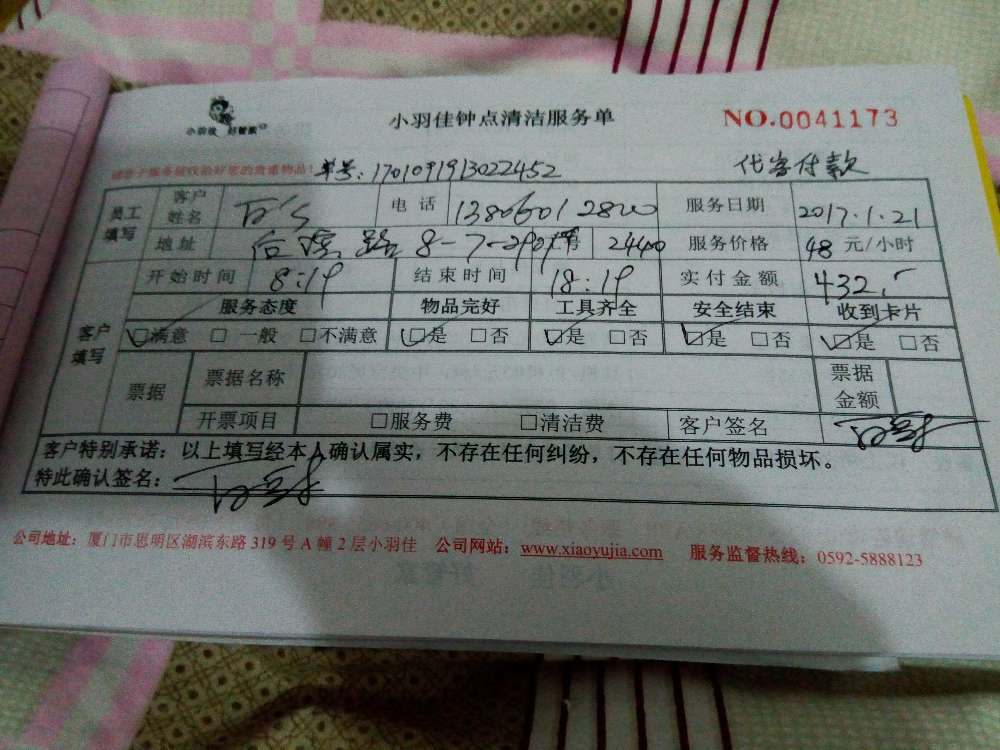 小羽佳 好管家
小羽佳钟点清洁服务单
NO.0041173
请您于服务前收验好您的贵重物品! 单号:170109191302245​2 代客付款
员工填写 客户姓名 电话 服务日期 2017.1.21
地址 路 8-7- 服务价格 48 元/小时
开始时间 8:19 结束时间 18:19 实付金额 432.
客户填写 服务态度 物品完好 工具齐全 安全结束 收到卡片
☑满意 □一般 □不满意 ☑是 □否 ☑是 □否 ☑是 □否 ☑是 □否
票据 票据名称 票据金额
开票项目 □服务费 □清洁费 客户签名
客户特别承诺:以上填写经本人确认属实,不存在任何纠纷,不存在任何物品损坏。
特此确认签名:
公司地址:厦门市思明区湖滨东路 319 号 A 幢 2 层小羽佳 公司网站:www.xiaoyujia.com 服务监督热线:0592-5888123